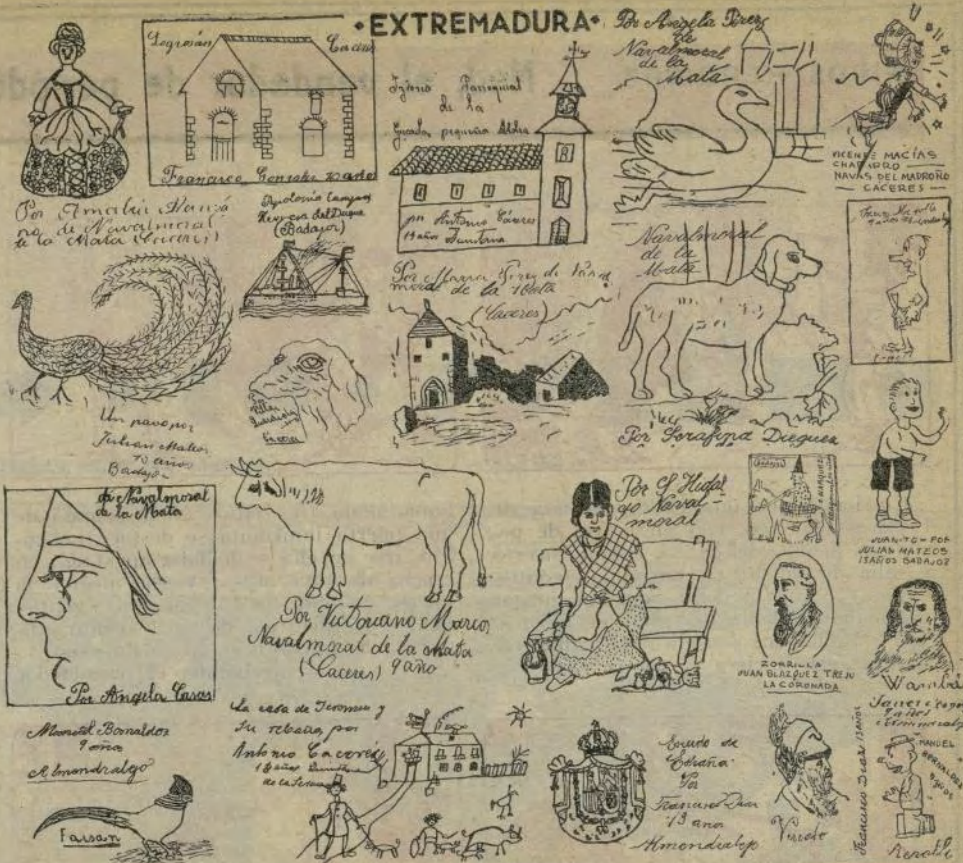 •EXTREMADURA•
Logrosán Caceres
Francisco Gonzalez 10 años
Parroquial
de la
pequeña Aldea
por Antonio Cáceres
14 años
Por Angela Pérez
de
Navalmoral
de la
Mata
VICENTE MACÍAS
CHAPARRO
NAVAS DEL MADROÑO
— CÁCERES —
Por Amalia
de Navalmoral
de la Mata (Caceres)
Apolonia
Herrera del Duque
(Badajoz)
Por Maria Pérez de
moral de la Mata
(Caceres)
Navalmoral
de la
Mata
Por Serafina Dieguez
Un pavo por
Julian Mateos
años
Badajoz
Pilar
Caceres
de Navalmoral
de la Mata
Por Angela Casas
Por Victoriano Marcos
Navalmoral de la Mata
(Caceres) 9 año
Por S. Hidal
go Naval
moral
JUANITO - POR
JULIAN MATEOS
13 AÑOS BADAJOZ
ZORRILLA
JUAN BLAZQUEZ TREJO
LA CORONADA
Wamba
Manuel Bernaldez
9 años
Almendralejo
Faisan
La casa de Jeronimo y
su rebaño, por
Antonio Caceres
de la Serena
Escudo de
España
Por
Francisco Diaz
13 años
Almendralejo
Viriato
Francisco Diaz 13 años
MANUEL
BERNALDEZ
9 años